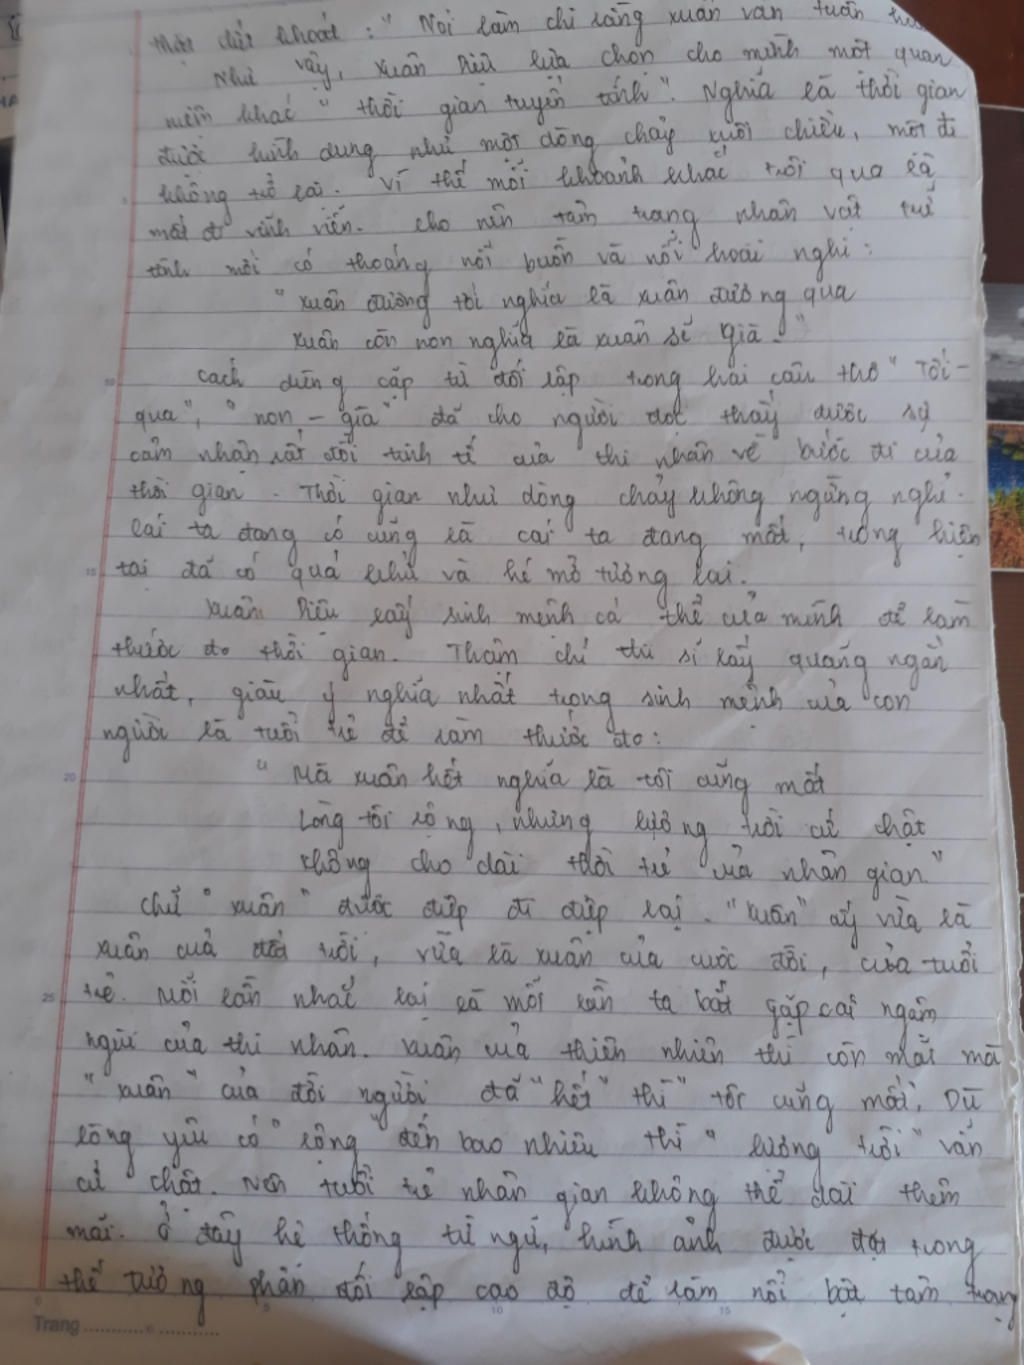 thật dứt khoát : " Nói làm chi rằng xuân vẫn tuần
Như vậy, Xuân Diệu lựa chọn cho mình một quan
niệm khác " thời gian tuyến tính ". Nghĩa là thời gian
được hình dung như một dòng chảy xuôi chiều, một đi
không trở lại. Vì thế mỗi khoảnh khắc trôi qua là
mất đi vĩnh viễn. cho nên tâm trạng nhân vật trữ
tình mới có thoáng nỗi buồn và nỗi hoài nghi :
" xuân đương tới nghĩa là xuân đương qua
xuân còn non nghĩa là xuân sẽ già. "
Cách dùng cặp từ đối lập trong hai câu thơ " Tới -
qua ", " non - già " đã cho người đọc thấy được sự
cảm nhận rất đỗi tinh tế của thi nhân về bước đi của
thời gian. Thời gian như dòng chảy không ngừng nghỉ.
Cái ta đang có cũng là cái ta đang mất, trong hiện
tại đã có quá khứ và hé mở tương lai.
Xuân Diệu lấy sinh mệnh cá thể của mình để làm
thước đo thời gian. Thậm chí thi sĩ lấy quãng ngắn
nhất, giàu ý nghĩa nhất trong sinh mệnh của con
người là tuổi trẻ để làm thước đo :
" Mà xuân hết nghĩa là tôi cũng mất
Lòng tôi rộng, nhưng lượng trời cứ chật
Không cho dài thời trẻ của nhân gian. "
Chữ " xuân " được điệp đi điệp lại. " Xuân " ấy vừa là
xuân của đất trời, vừa là xuân của cuộc đời, của tuổi
trẻ. Mỗi lần nhắc lại là mỗi lần ta bắt gặp cái ngậm
ngùi của thi nhân. Xuân của thiên nhiên thì còn mãi mà
" xuân " của đời người đã " hết " thì " tôi cũng mất ". Dù
lòng yêu có " rộng " đến bao nhiêu thì " lượng trời " vẫn
cứ chật. Nên tuổi trẻ nhân gian không thể dài thêm
mãi. Ở đây hệ thống từ ngữ, hình ảnh được đặt trong
thế tương phản đối lập cao độ để làm nổi bật tâm trạng
5
10
15
20
25
0
5
10
15
Trang